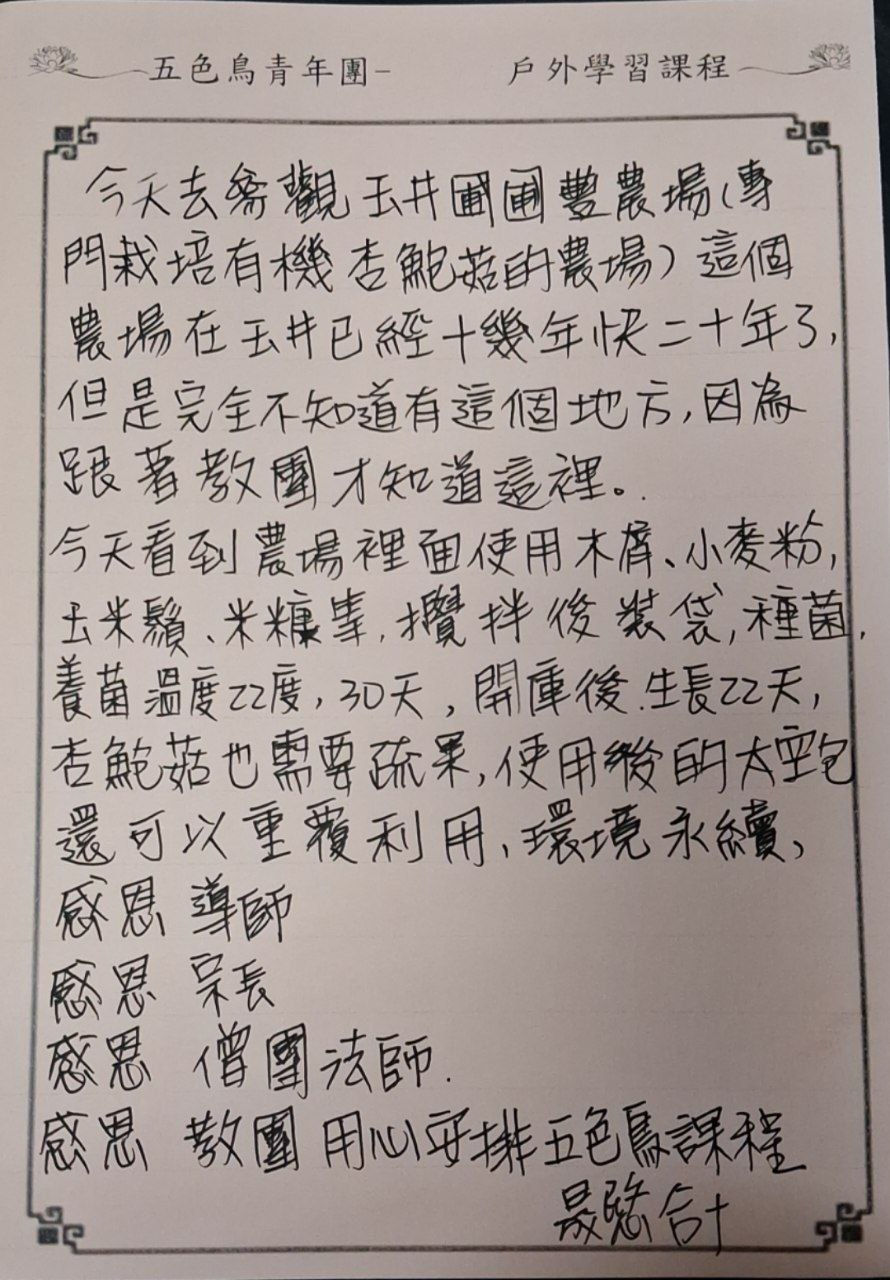 五色鳥青年團- 戶外學習課程
今天去參觀玉井圃圃豐農場(專
門栽培有機杏鮑菇的農場)這個
農場在玉井已經十幾年快二十年了,
但是完全不知道有這個地方,因為
跟著教團才知道這裡。
今天看到農場裡面使用木屑、小麥粉,
玉米鬚、米糠等,攪拌後裝袋,種菌,
養菌溫度22度,30天,開庫後.生長22天,
杏鮑菇也需要疏果,使用後的太空包
還可以重覆利用,環境永續、
感恩 導師
感恩 宗長
感恩 僧團法師.
感恩 教團用心安排五色鳥課程
合十